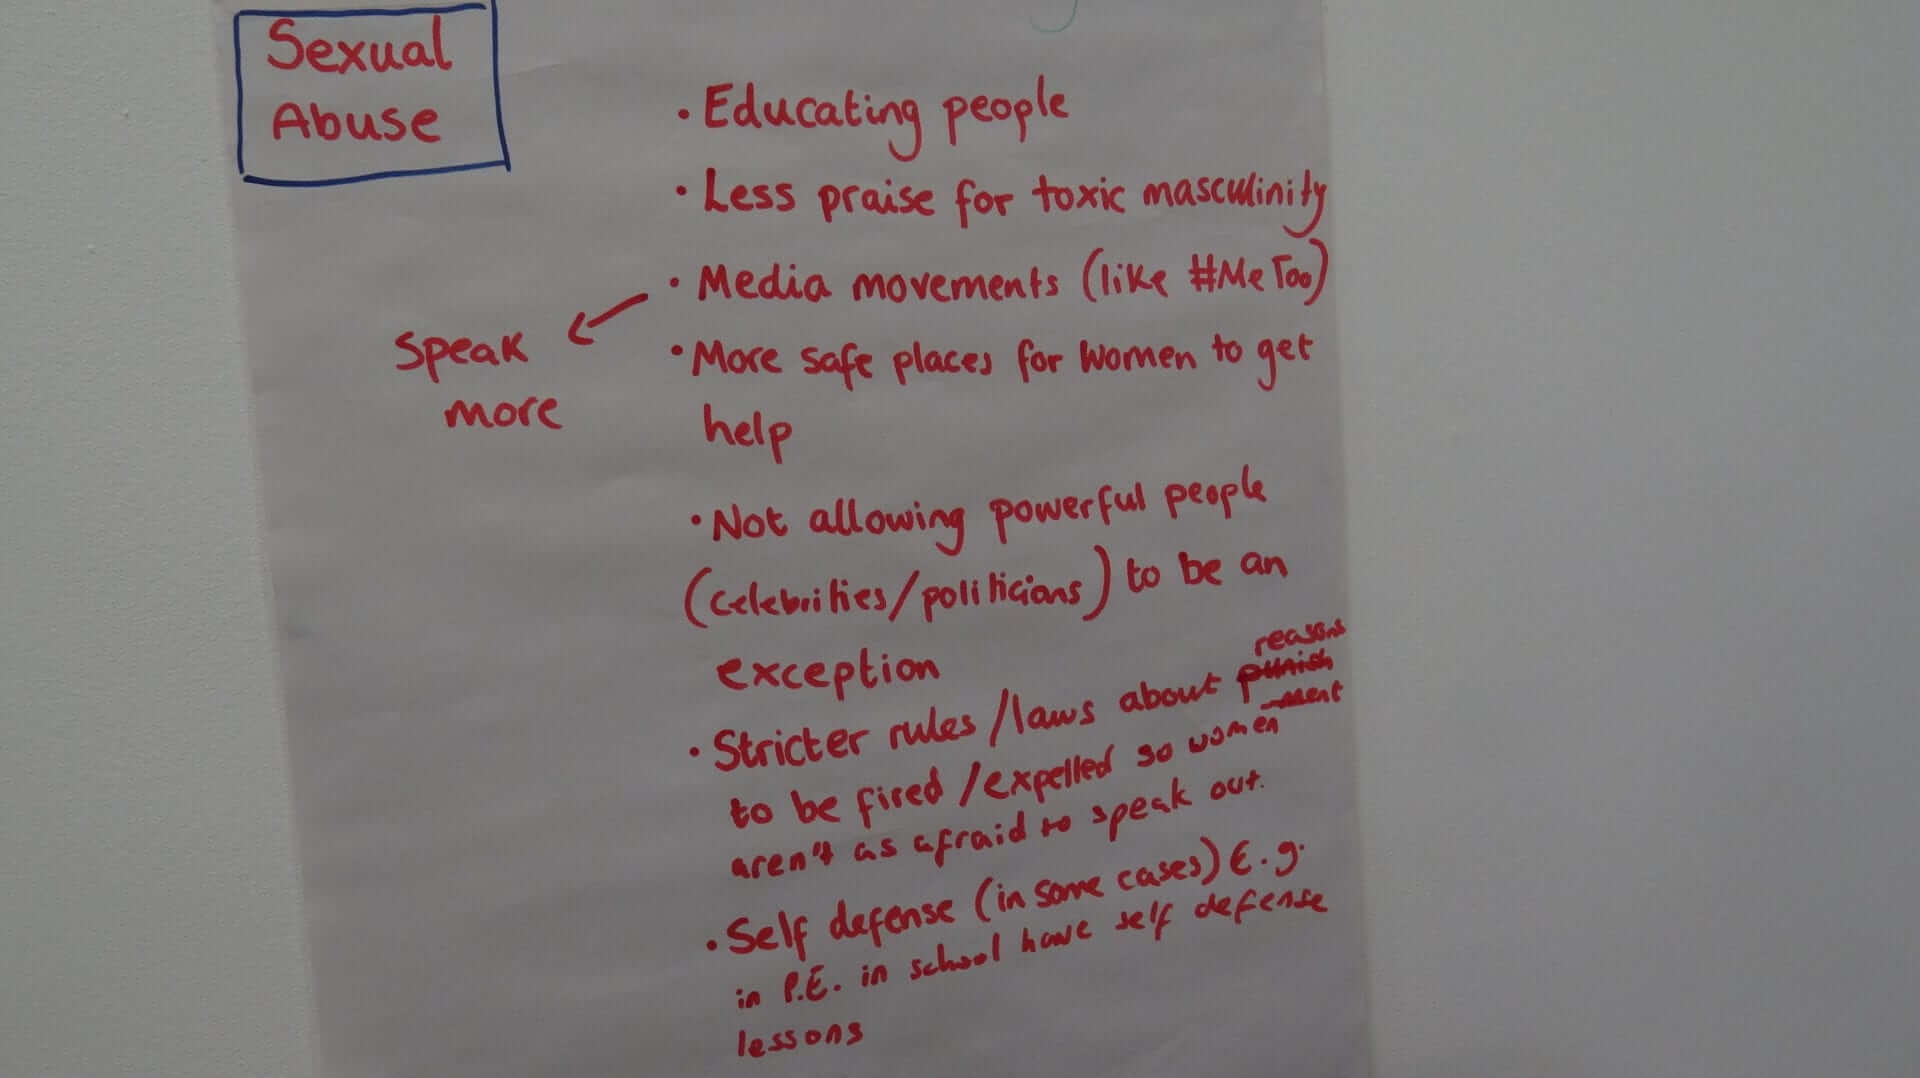 Sexual
Abuse
• Educating people
• Less praise for toxic masculinity
• Media movements (like #MeToo)
Speak
more
• More safe places for women to get
help
• Not allowing powerful people
(celebrities/politicians) to be an
exception
reasons
• Stricter rules/laws about punish
-ment
to be fired/expelled so women
aren't as afraid to speak out.
• Self defense (in some cases) E.g.
in P.E. in school have self defense
lessons